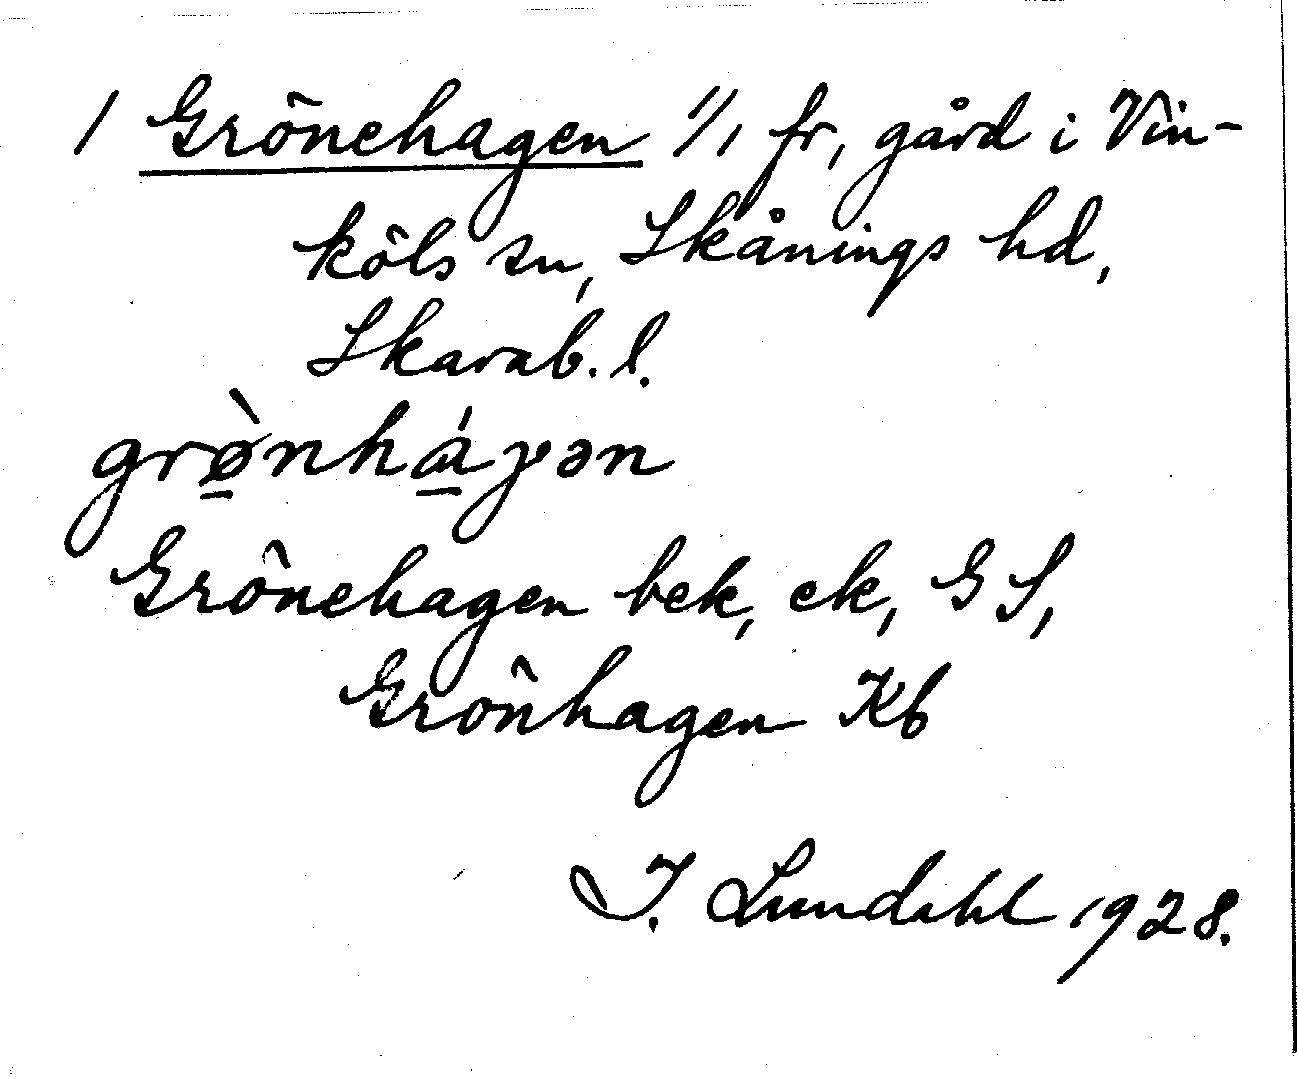 1 Grönehagen 1/1 fr, gård i Vin-
köls sn, Skånings hd,
Skarab. l.
grø̠̀nhá̠γən
Grönehagen bek, ek, GS,
Grönhagen Kb
I. Lundahl 1928.